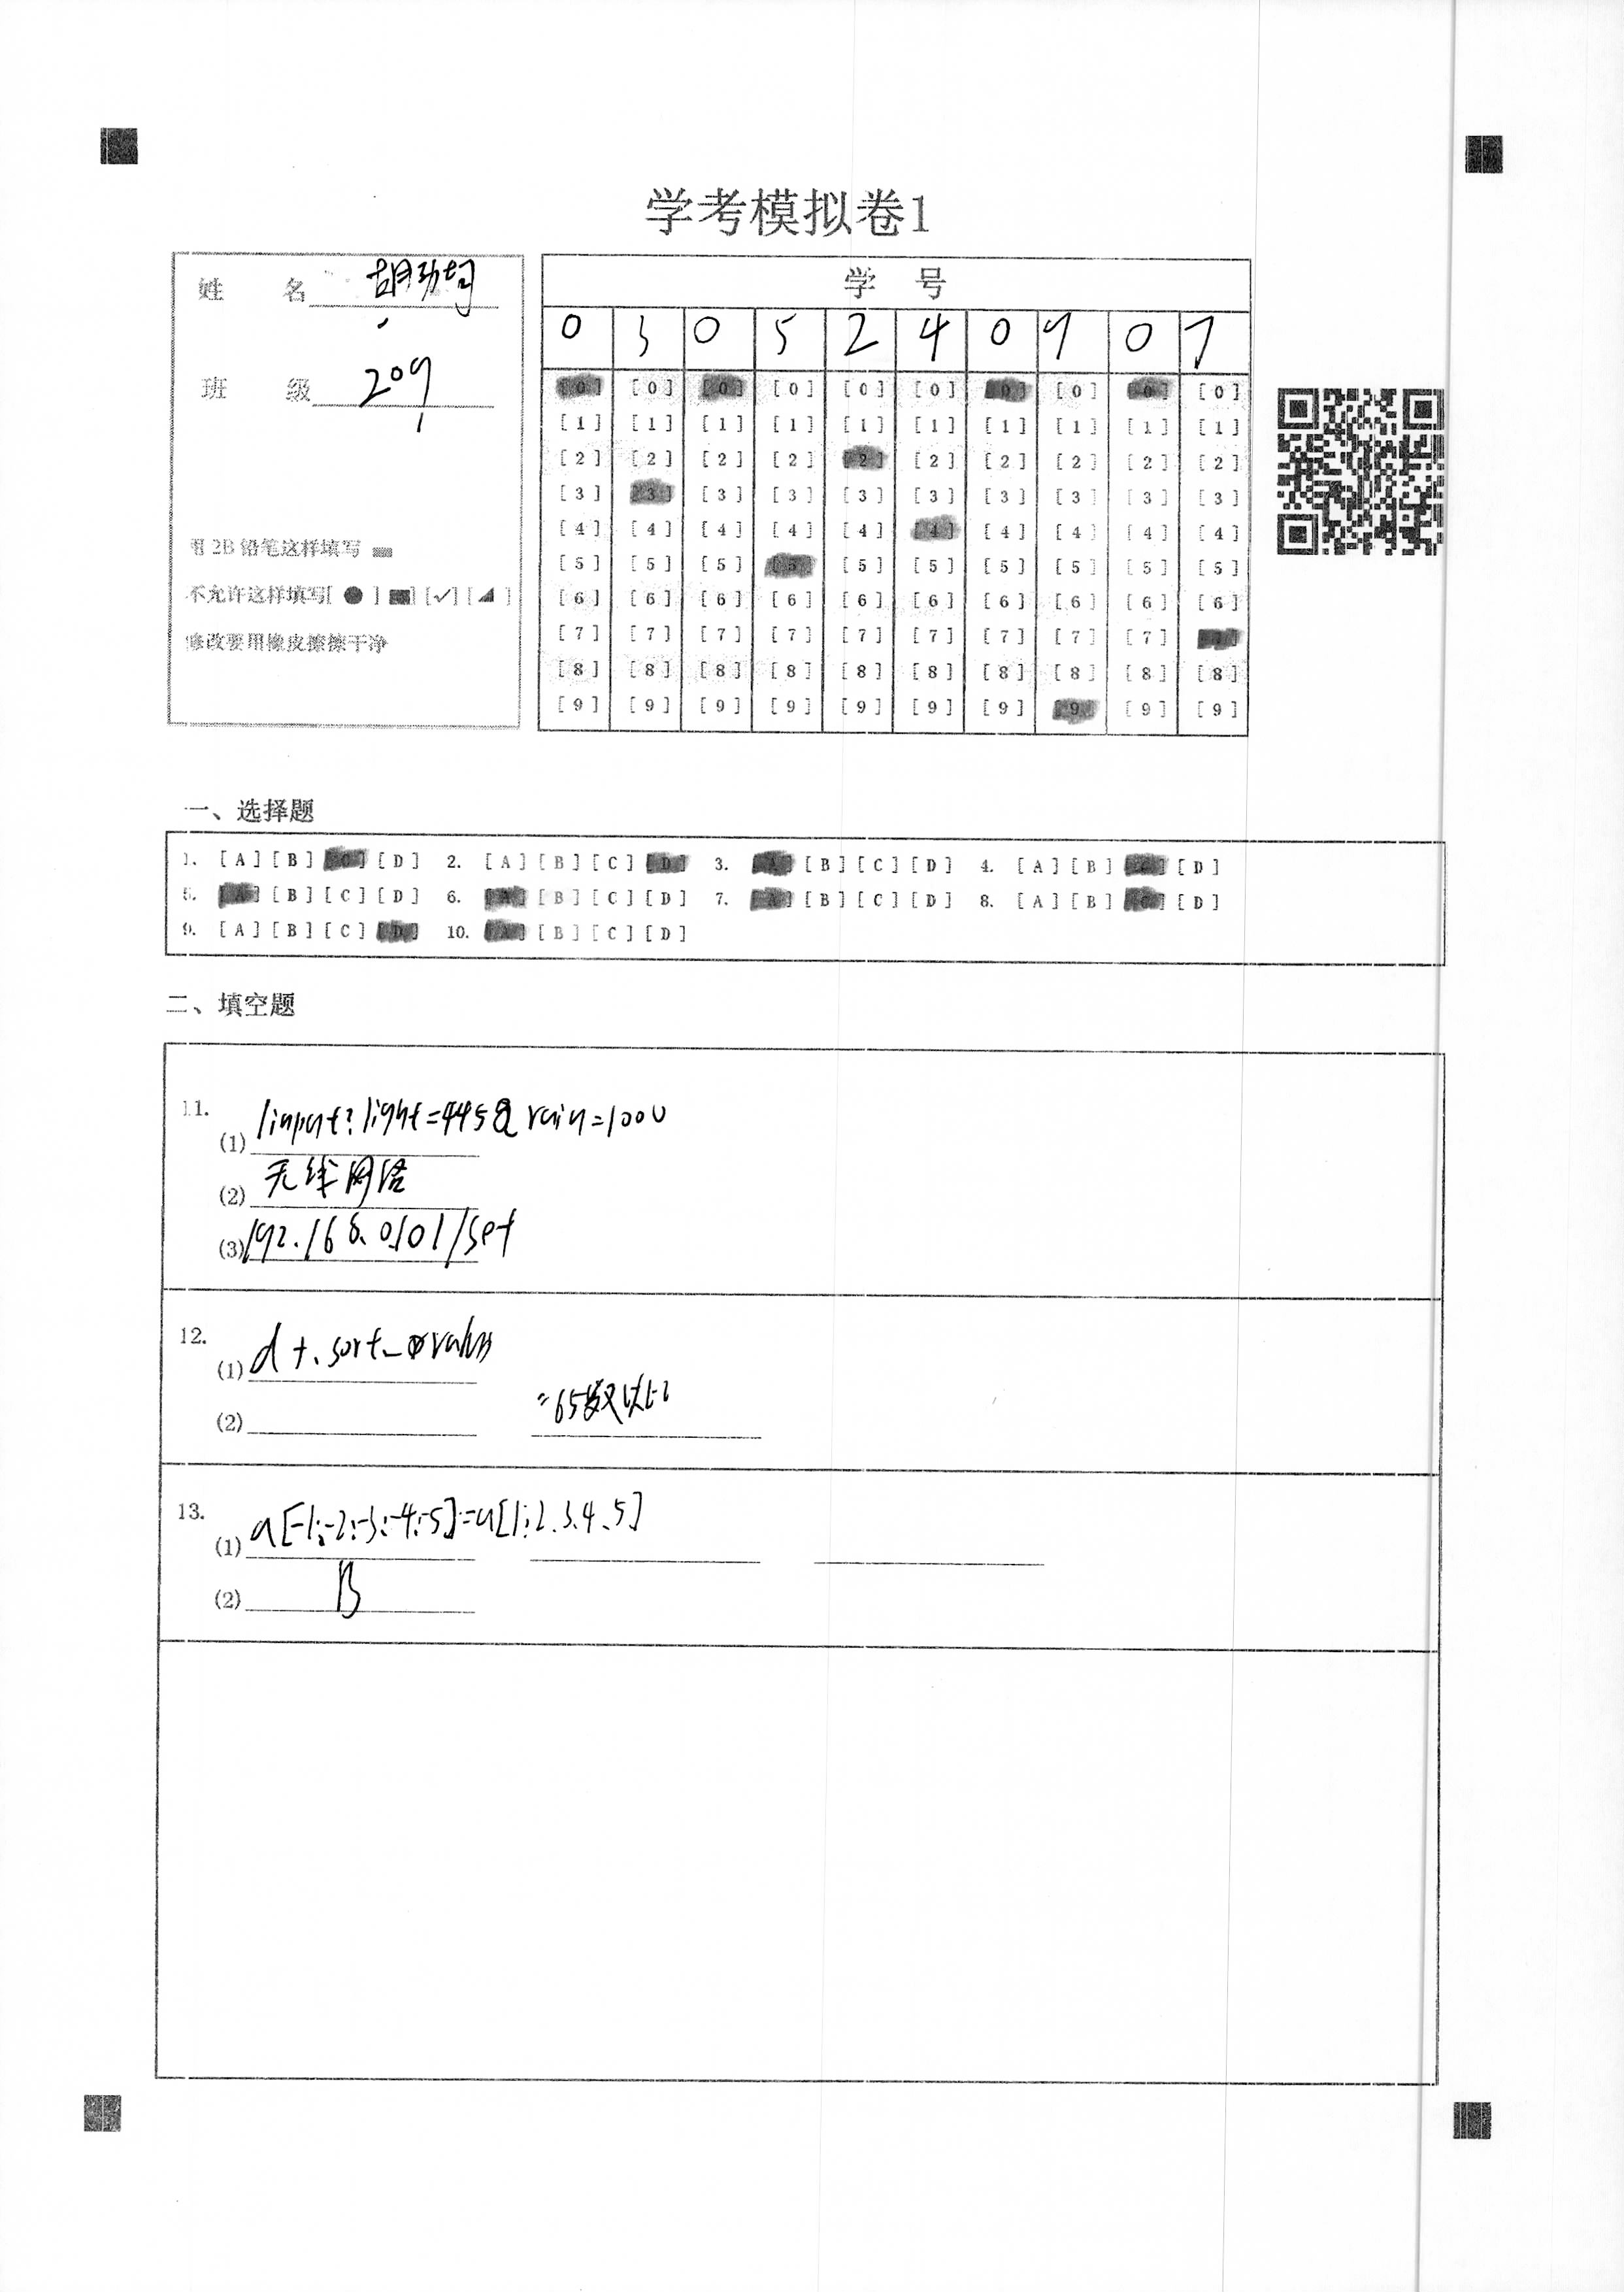 学考模拟卷1
姓 名
班 级 209
用 2B 铅笔这样填写
不允许这样填写[ ● ] [✓] [ ◢ ]
修改要用橡皮擦擦干净
学 号
0 3 0 5 2 4 0 9 0 7
[0] [0] [0] [0] [0] [0] [0] [0] [0] [0]
[1] [1] [1] [1] [1] [1] [1] [1] [1] [1]
[2] [2] [2] [2] [2] [2] [2] [2] [2] [2]
[3] [3] [3] [3] [3] [3] [3] [3] [3] [3]
[4] [4] [4] [4] [4] [4] [4] [4] [4] [4]
[5] [5] [5] [5] [5] [5] [5] [5] [5] [5]
[6] [6] [6] [6] [6] [6] [6] [6] [6] [6]
[7] [7] [7] [7] [7] [7] [7] [7] [7] [7]
[8] [8] [8] [8] [8] [8] [8] [8] [8] [8]
[9] [9] [9] [9] [9] [9] [9] [9] [9] [9]
一、选择题
1. [A] [B] [C] [D] 2. [A] [B] [C] [D] 3. [A] [B] [C] [D] 4. [A] [B] [C] [D]
5. [A] [B] [C] [D] 6. [A] [B] [C] [D] 7. [A] [B] [C] [D] 8. [A] [B] [C] [D]
9. [A] [B] [C] [D] 10. [A] [B] [C] [D]
二、填空题
11.
(1) /input?light=445& rain=1000
(2) 无线网络
(3) 192.168.0.101/set
12.
(1)
(2)
13.
(1) a[-1:-2:-3:-4:-5]=a[1:2.3.4.5]
(2) B